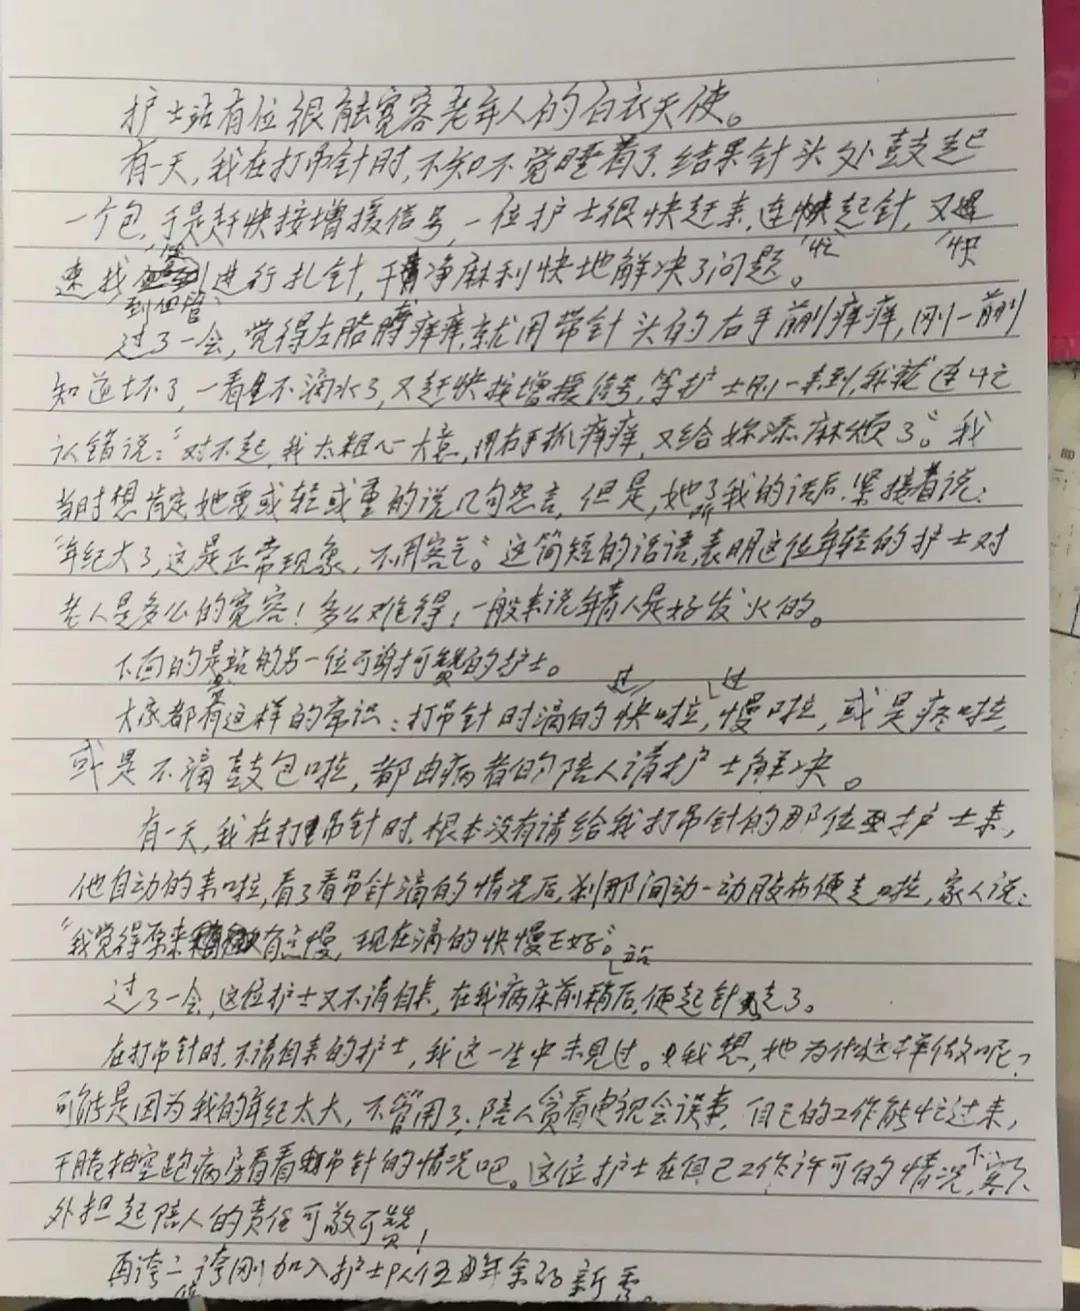 护士站有位很能宽容老年人的白衣天使。
有一天,我在打吊针时,不知不觉睡着了.结果针头处鼓起
一个包,于是赶快按增援信号,一位护士很快赶来,连忙起针,又快
速找到血管进行扎针,干净麻利快地解决了问题。
过了一会,觉得左胳膊痒痒,就用带针头的右手前削痒痒,刚一削
知道坏了,一看不滴水了,又赶快按增援信号,等护士刚一来到,我就连忙
认错说:"对不起,我太粗心大意,用右手抓痒痒,又给妳添麻烦了。"我
当时想肯定她要或轻或重的说几句怨言,但是,她听了我的话后.紧接着说:
"年纪大了,这是正常现象,不用客气。"这简短的话语,表明这位年轻的护士对
老人是多么的宽容!多么难得!一般来说年青人是好发火的。
下面的是站的另一位可谢可赞的护士。
大家都有这样的常识:打吊针时滴的过快啦,过慢啦,或是疼啦,
或是不滴鼓包啦,都由病者的陪人请护士解决。
有一天,我在打吊针时.根本没有请给我打吊针的那位护士来,
他自动的来啦,看了看吊针滴的情况后,刹那间动一动胶布便走啦,家人说:
"我觉得原来有点慢,现在滴的快慢正好。"
过了一会,这位护士又不请自来,在我病床前稍站后,便起针走了。
在打吊针时.不请自来的护士,我这一生中未见过。我想,她为什么这样做呢?
可能是因为我的年纪太大,不管用了,陪人贪看电视会误事,自己的工作能忙过来,
干脆抽空跑病房看看吊针的情况吧。这位护士在自己工作许可的情况下,
外担起陪人的责任可敬可赞!
再夸一夸刚加入护士队伍年余的新秀。